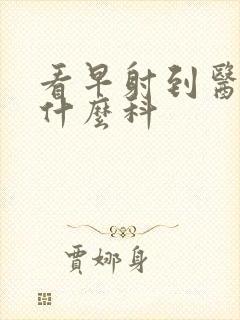 看早射到醫
什麼科
賈娜身